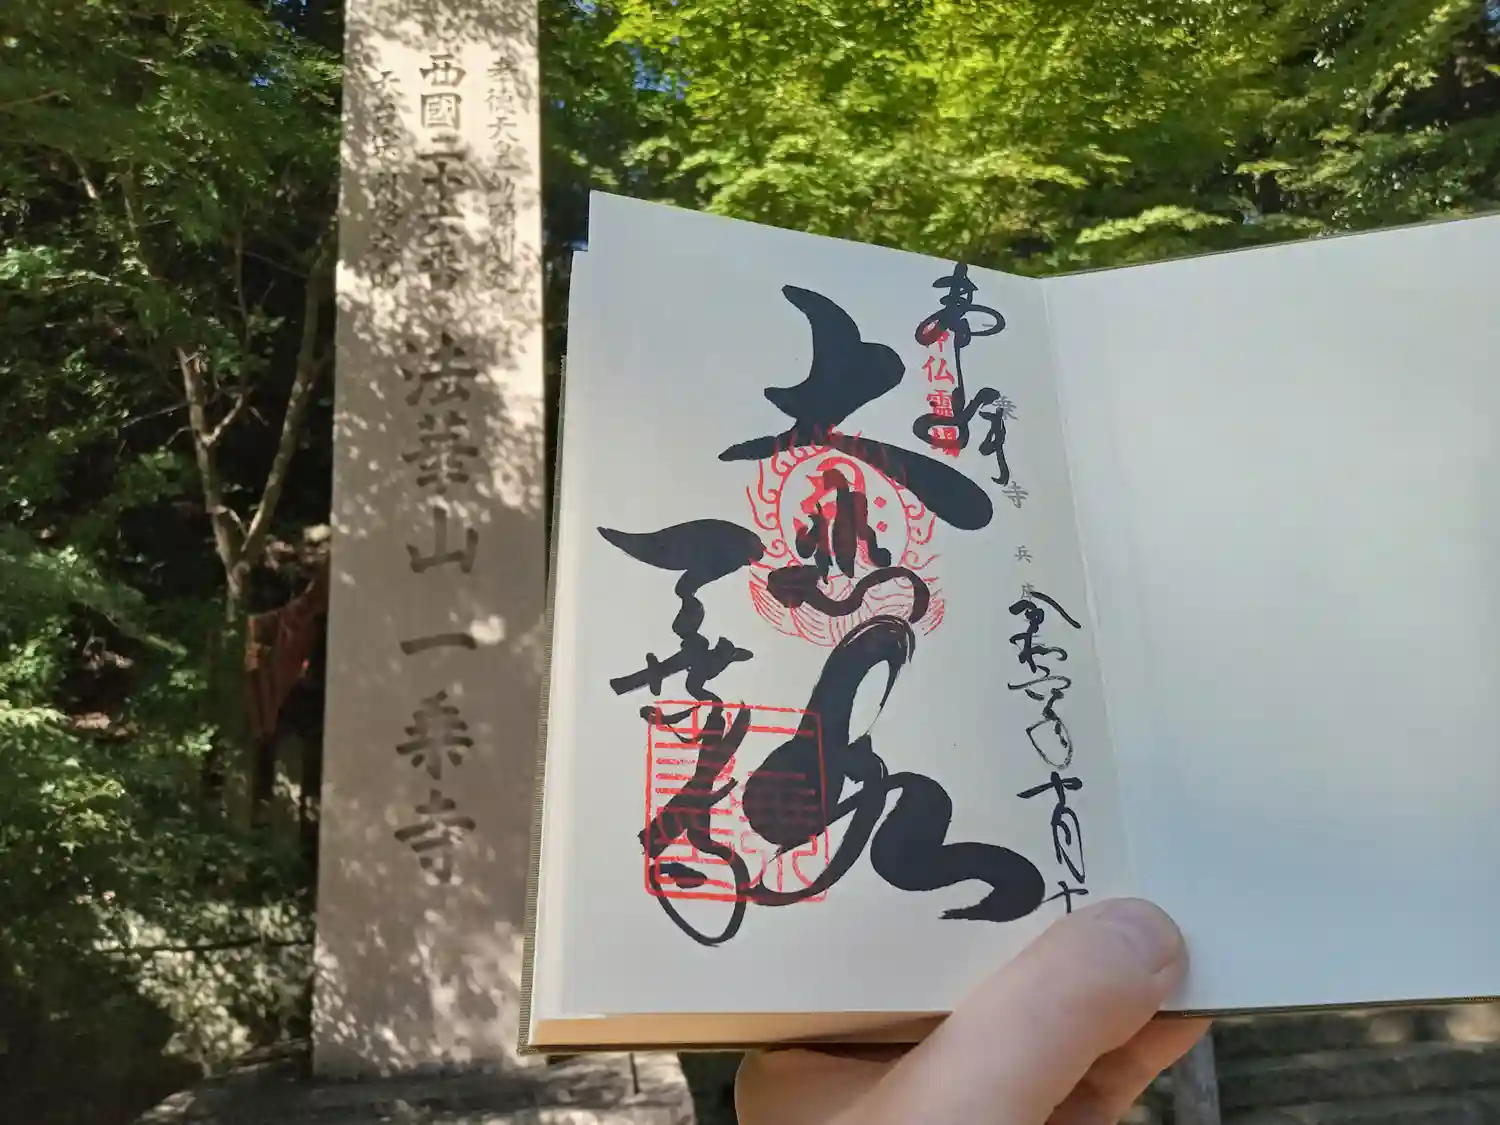 孝徳天皇勅願所
西國二十六番 法華山一乗寺
奉拝
神仏霊場
乗寺 兵庫
令和六年十月十
大悲殿
一乗寺